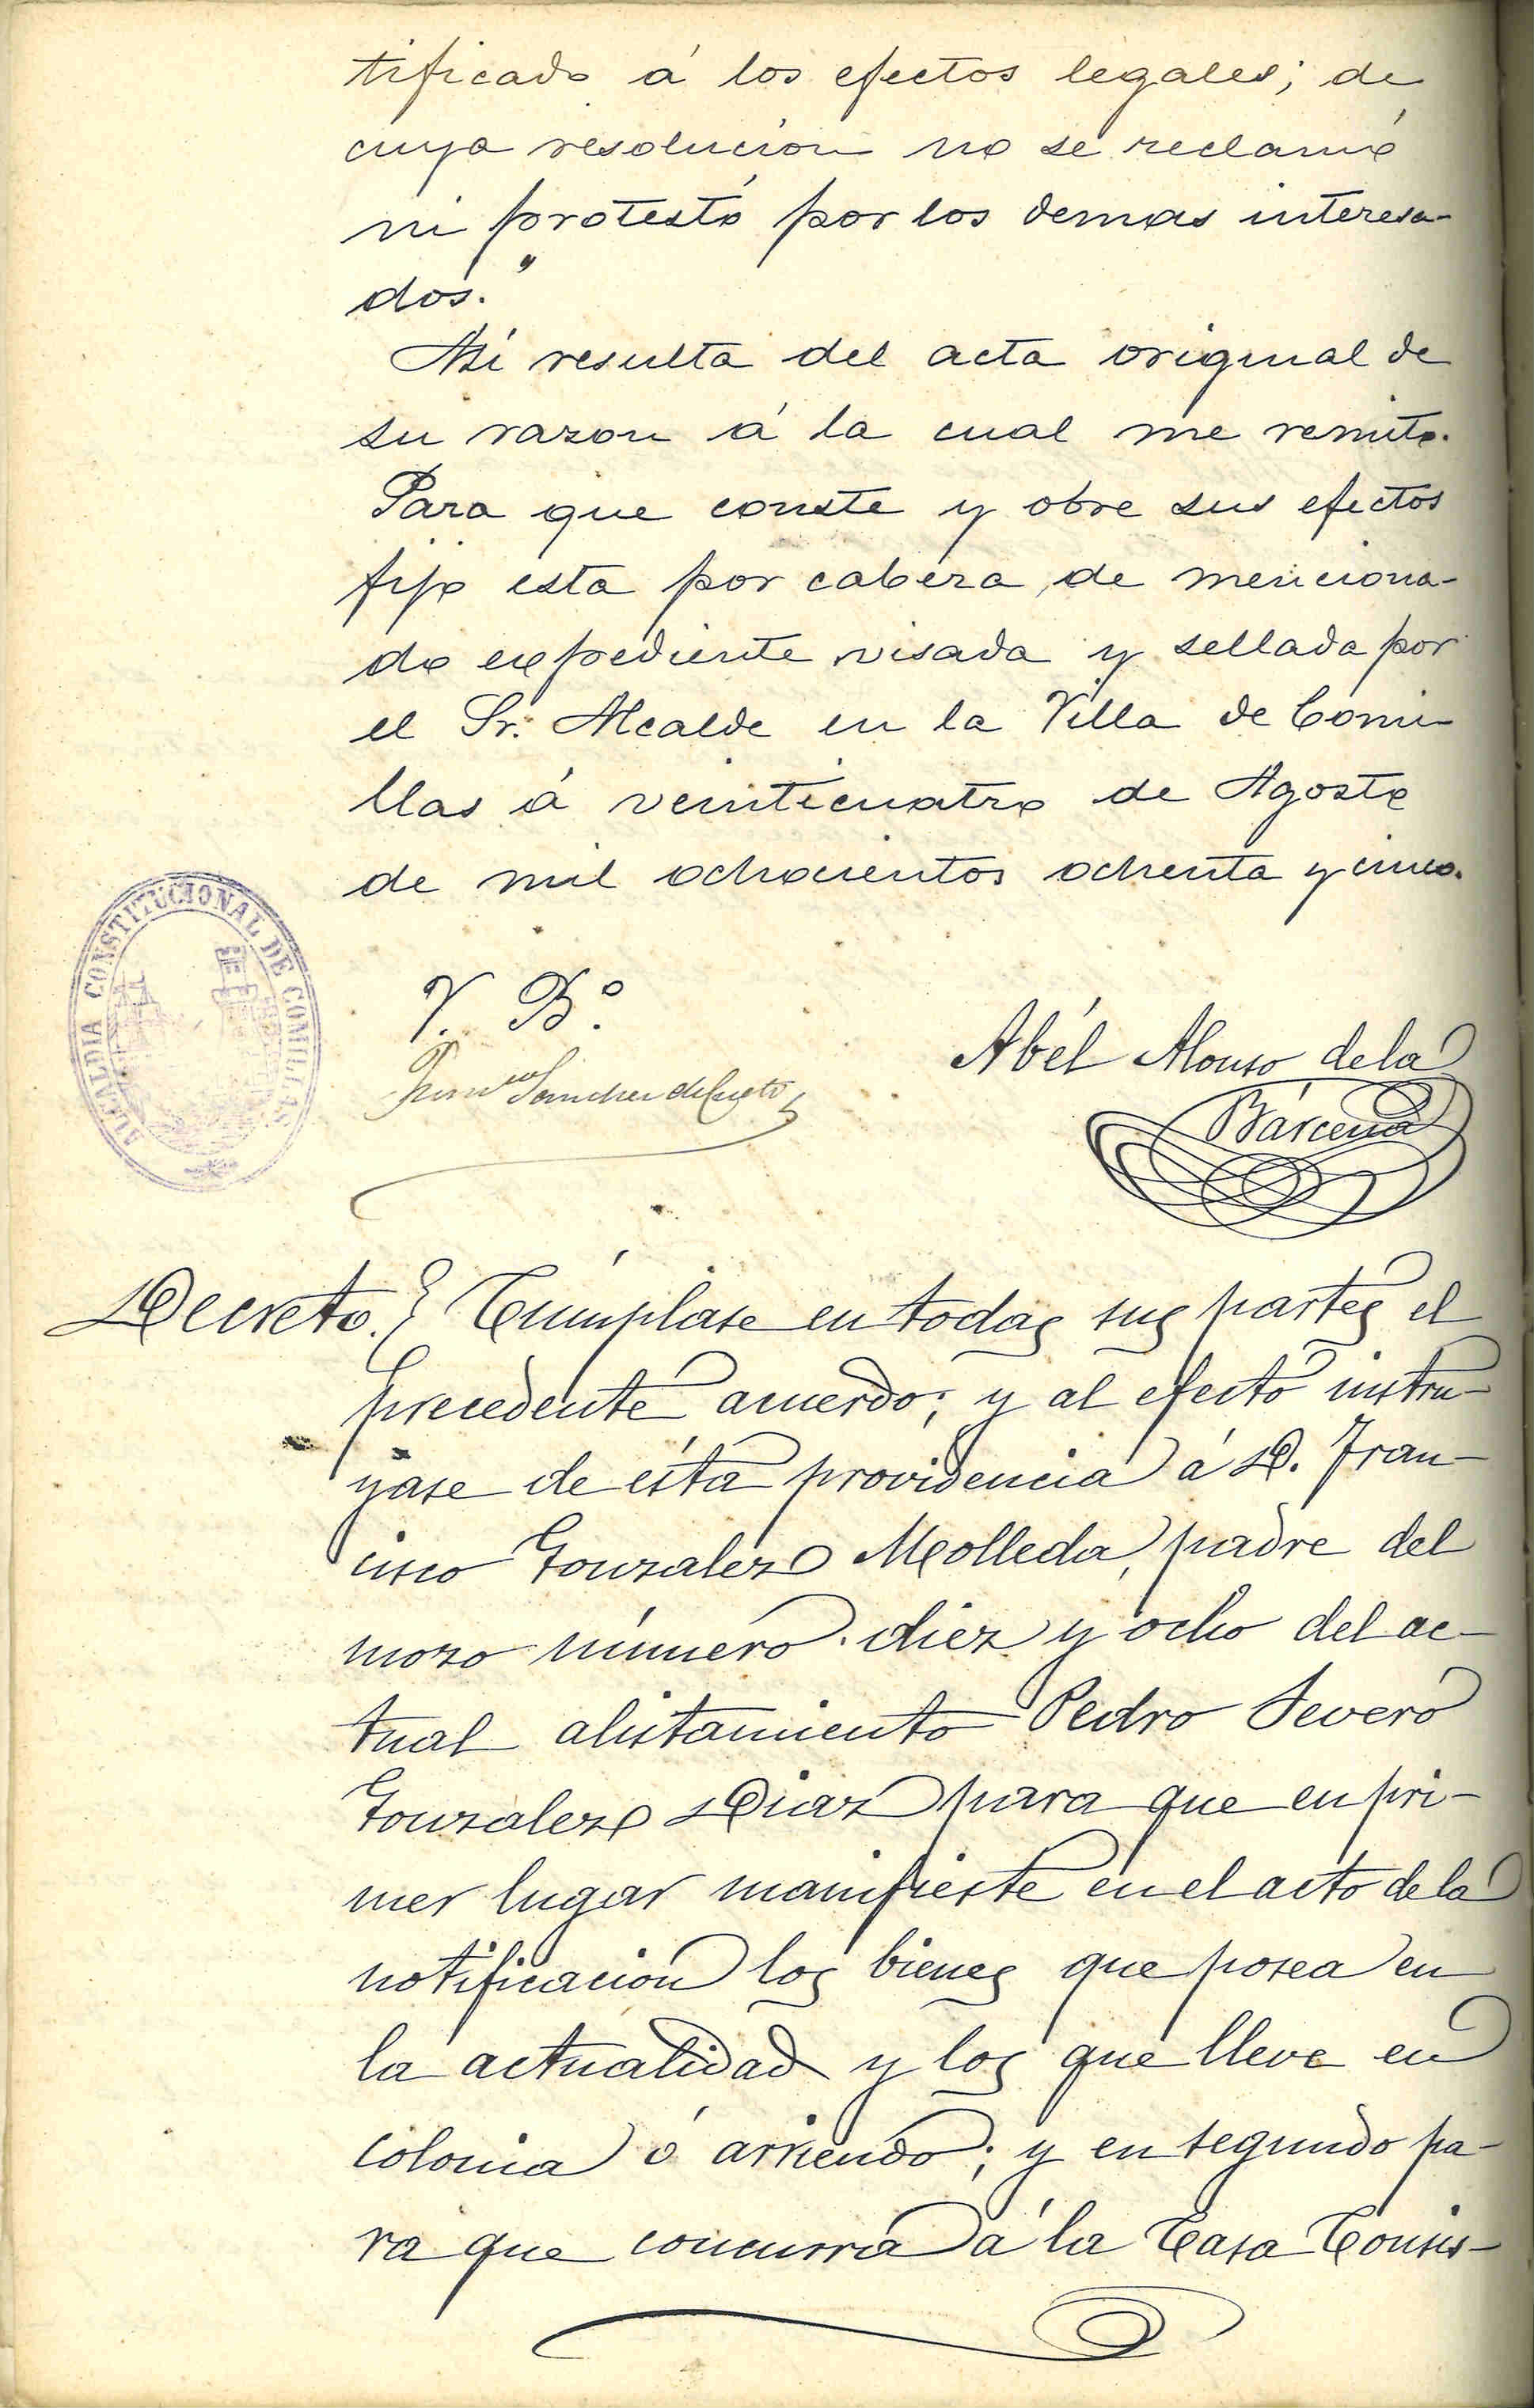 tificado á los efectos legales; de
cuya resolucion no se reclamó
ni protestó por los demas interesa-
dos."
Asi resulta del acta original de
su razon á la cual me remito.
Para que conste y obre sus efectos
fijo esta por cabeza de menciona-
do expediente visada y sellada por
el Sr. Alcalde en la Villa de Comi-
llas á veinticuatro de Agosto
de mil ochocientos ochenta y cinco.
ALCALDIA CONSTITUCIONAL DE COMILLAS
V. B.º
Sanchez de Cueto
Abél Alonso de la
Bárcena
Decreto. } Cúmplase en todas sus partes el
precedente acuerdo; y al efecto instru-
yase de ésta providencia á D. Fran-
cisco Gonzalez Molleda, padre del
mozo número diez y ocho del ac-
tual alistamiento Pedro Severo
Gonzalez Diaz para que en pri-
mer lugar manifieste en el acto de la
notificacion los bienes que posea en
la actualidad y los que lleve en
colonia ó arriendo; y en segundo pa-
ra que concurra á la Casa Consis-